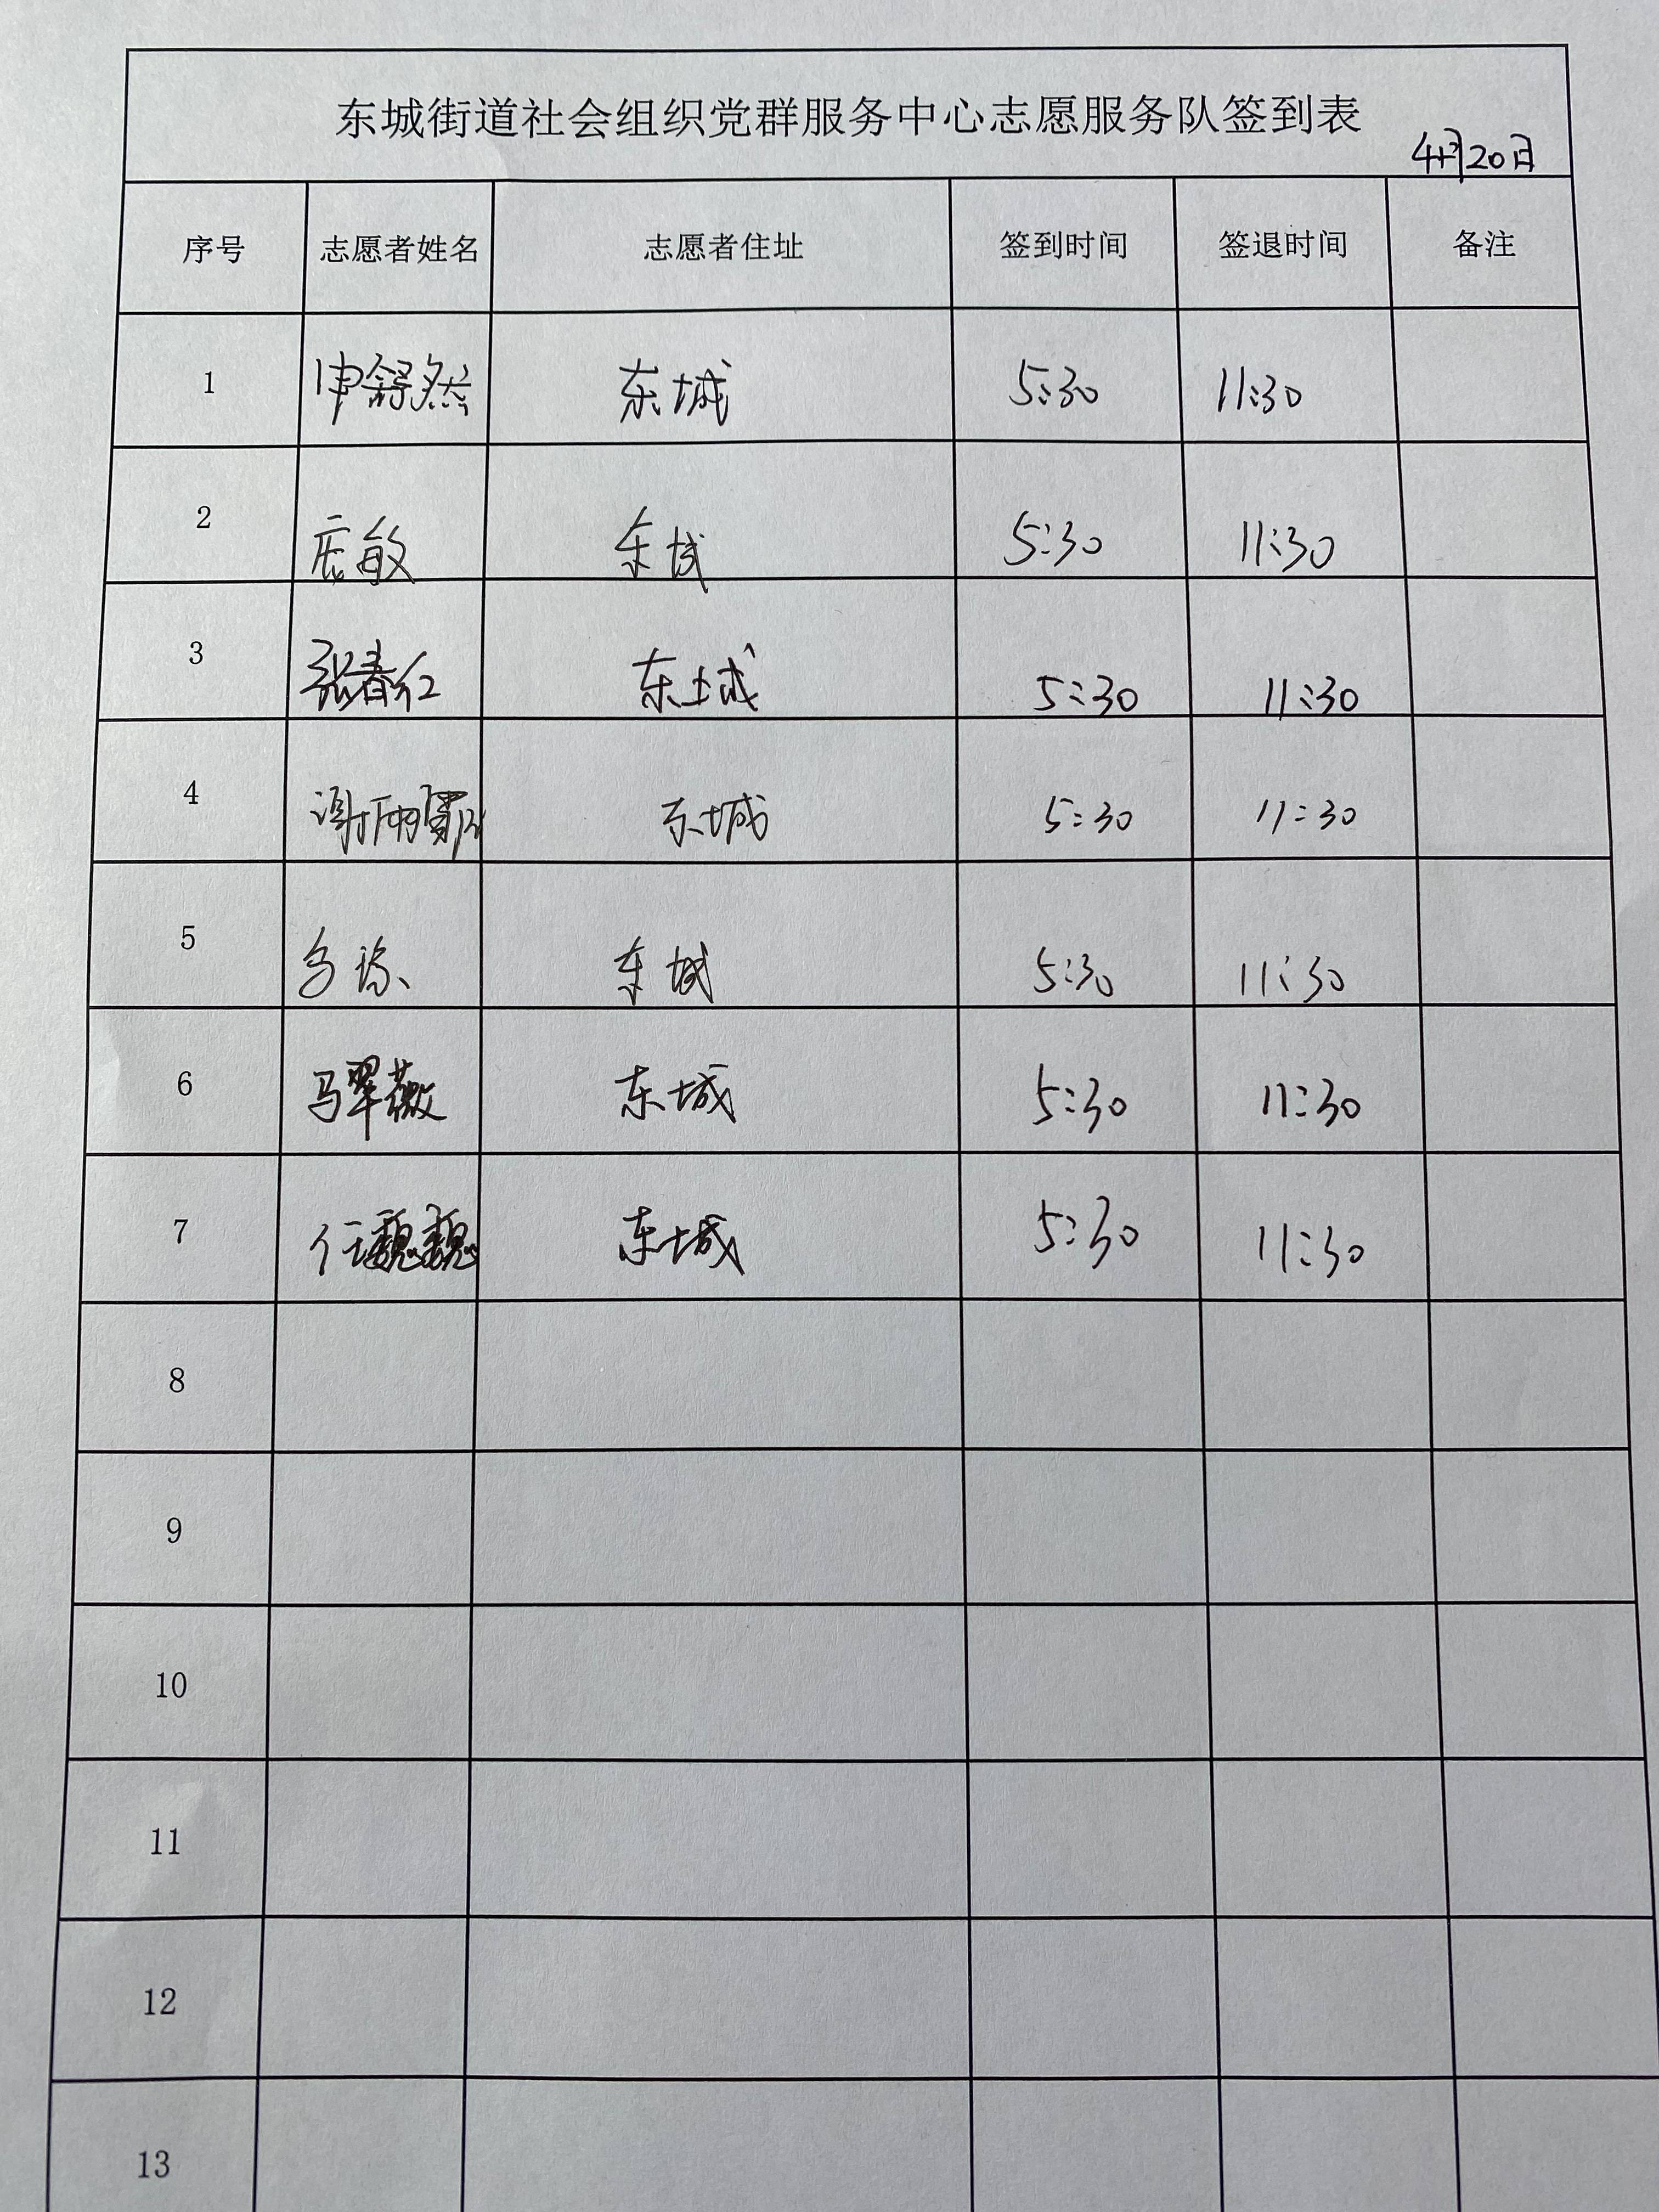 东城街道社会组织党群服务中心志愿服务队签到表
4月20日
序号 志愿者姓名 志愿者住址 签到时间 签退时间 备注
1 申舒然 东城 5:30 11:30
2 敏 东城 5:30 11:30
3 张春红 东城 5:30 11:30
4 谢雨 东城 5:30 11:30
5 东城 5:30 11:30
6 马翠薇 东城 5:30 11:30
7 任魏魏 东城 5:30 11:30
8
9
10
11
12
13